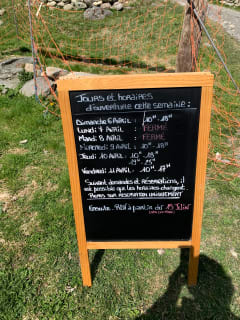 Jours et horaires
d'ouverture cette semaine :
Dimanche 6 AVRIL : 10H - 18H
Lundi 7 AVRIL : FERMÉ
Mardi 8 AVRIL : FERMÉ
Mercredi 9 AVRIL : 10H - 18H
Jeudi 10 AVRIL : 10H - 18H
Vendredi 11 AVRIL : 10H - 17H
Suivant demandes et réservations, il
est possible que les horaires changent.
REPAS SUR RÉSERVATION UNIQUEMENT
Ensuite : RDV à partir du 15 Juin